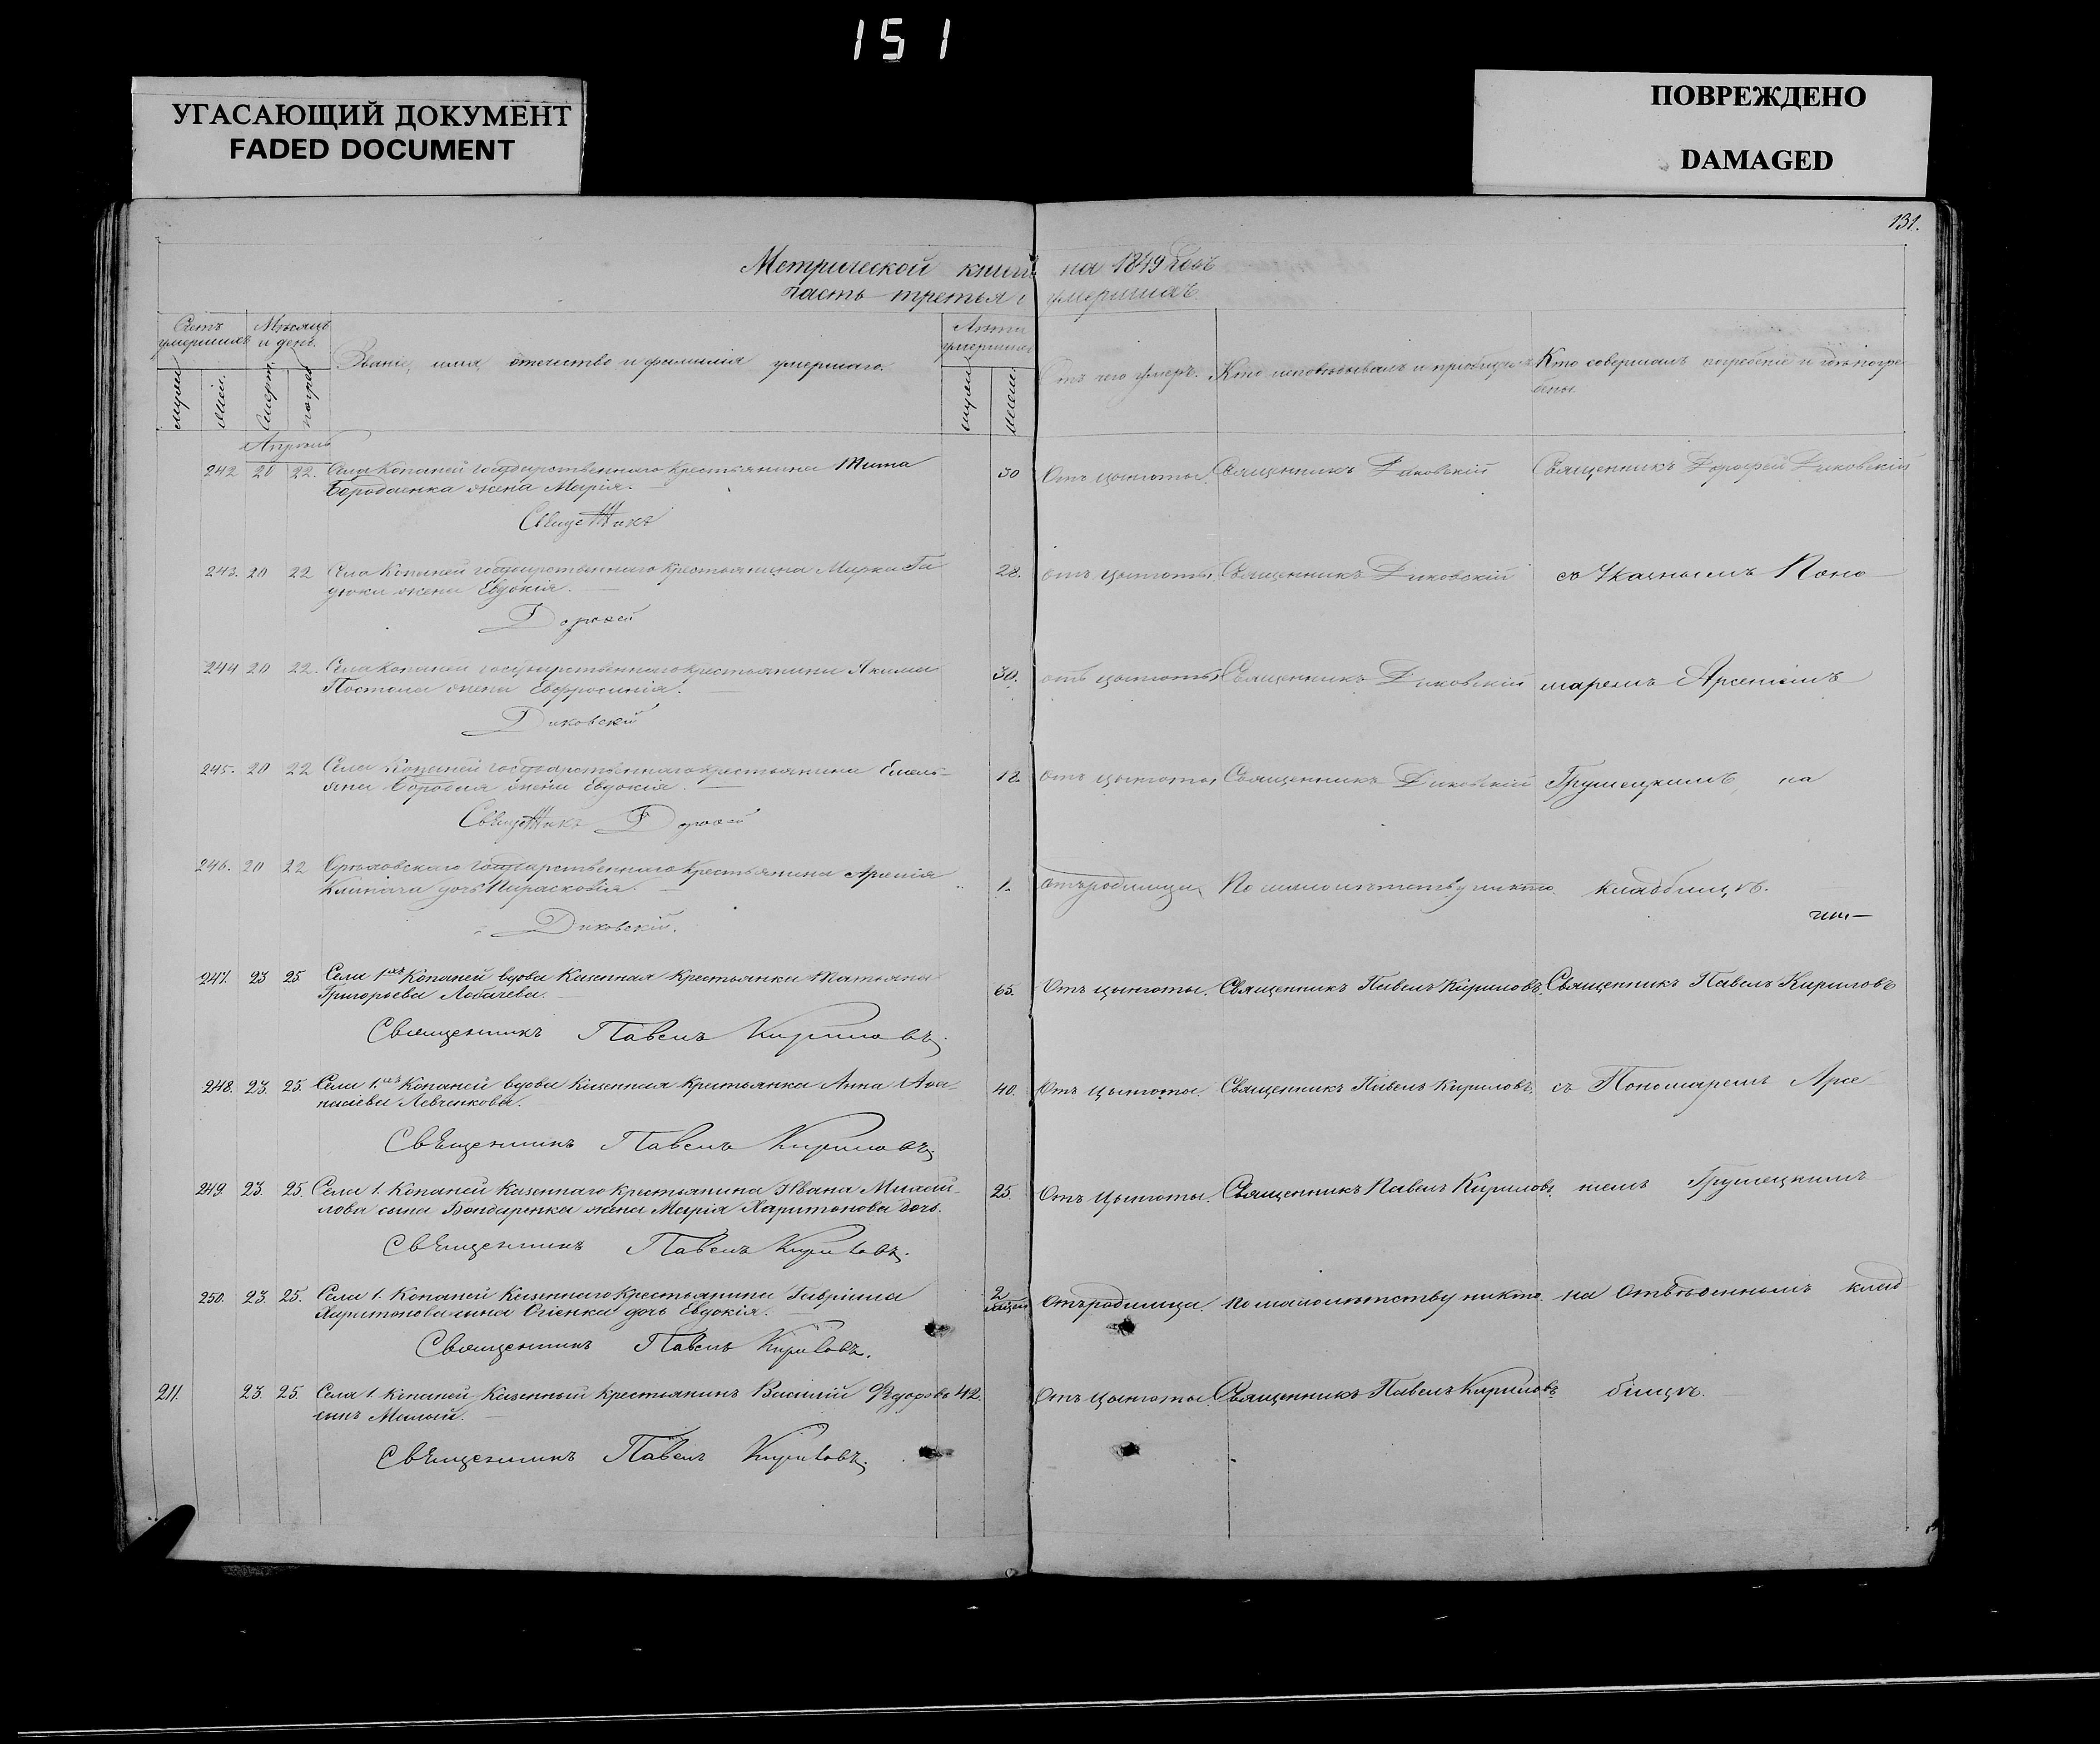 151
УГАСАЮЩИЙ ДОКУМЕНТ
FADED DOCUMENT
ПОВРЕЖДЕНО
DAMAGED
131.
Метрической книги на 1849 годъ
часть третья о умершихъ.
Счетъ умершихъ
Мѣсяцъ и день.
Званіе, имя, отечество и фамилія умершаго.
Лѣта умершихъ
Отъ чего умеръ.
Кто исповѣдывалъ и пріобщалъ
Кто совершалъ погребеніе и гдѣ погребены.
Апрѣль
242 20 22. Села Копаней государственнаго крестьянина Тита 30 Отъ цынготы. Священникъ Диковскій Священникъ Дорофей Диковскій
Бородаенка жена Марія.
Священникъ
243. 20 22 Села Копаней государственнаго крестьянина Марка Га 28. отъ цынготы, Священникъ Диковскій съ Указнымъ Поно
дюки жена Евдокія.
Дорофей
244 20 22. Села Копаней государственнаго крестьянина Якима 30. отъ цынготы, Священникъ Диковскій маремъ Арсеніемъ
Постола жена Евфросинія.
Диковскій
245. 20 22 Села Копаней государственнаго крестьянина Емель- 18 отъ цынготы, Священникъ Диковскій Грушецкимъ, на
яна жена Евдокія.
Священникъ Дорофей
246. 20 22 государственнаго крестьянина 1. отъ родимца По малолѣтству никто кладбищѣ.
дочь Парасковія.
Диковскій.
247. 23 25 Села 1хъ Копаней вдова Казенная крестьянка Татьяна 65. Отъ цынготы. Священникъ Павелъ Кириловъ. Священникъ Павелъ Кириловъ
Григорьева Лобачева.
Священникъ Павелъ Кириловъ.
248. 23. 25. Села 1.хъ Копаней вдова Казенная крестьянка Анна Афа- 40. Отъ цынготы. Священникъ Павелъ Кириловъ. съ Пономаремъ Арсе
насіева Левченкова.
Священникъ Павелъ Кириловъ.
249. 23. 25. Села 1. Копаней Казеннаго крестьянина Ивана Михай- 25. Отъ Цынготы. Священникъ Павелъ Кириловъ. ніемъ Грушецкимъ
лова сына Бондаренка жена Марія Харитонова дочь.
Священникъ Павелъ Кириловъ.
250. 23. 25. Села 1. Копаней Казеннаго крестьянина Гавріила 2 Отъ родимца. по малолѣтству никто. на отведенномъ клад
Харитонова сына дочь Евдокія.
Священникъ Павелъ Кириловъ.
211. 23. 25. Села 1. Копаней Казенный крестьянинъ Василій Федоровъ 42. Отъ цынготы. Священникъ Павелъ Кириловъ. бищѣ.
сынъ Малый.
Священникъ Павелъ Кириловъ.